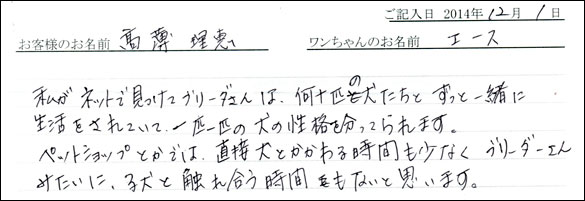 ご記入日 2014年12月1日
お客様のお名前 高薄 理恵 ワンちゃんのお名前 エース
私がネットで見つけてブリーダさんは、何十匹の犬たちとずっと一緒に
生活をされていて、一匹一匹の犬の性格を分ってられます。
ペットショップとかでは、直接犬とかかわる時間も少なくブリーダーさん
みたいに、子犬と触れ合う時間もないと思います。